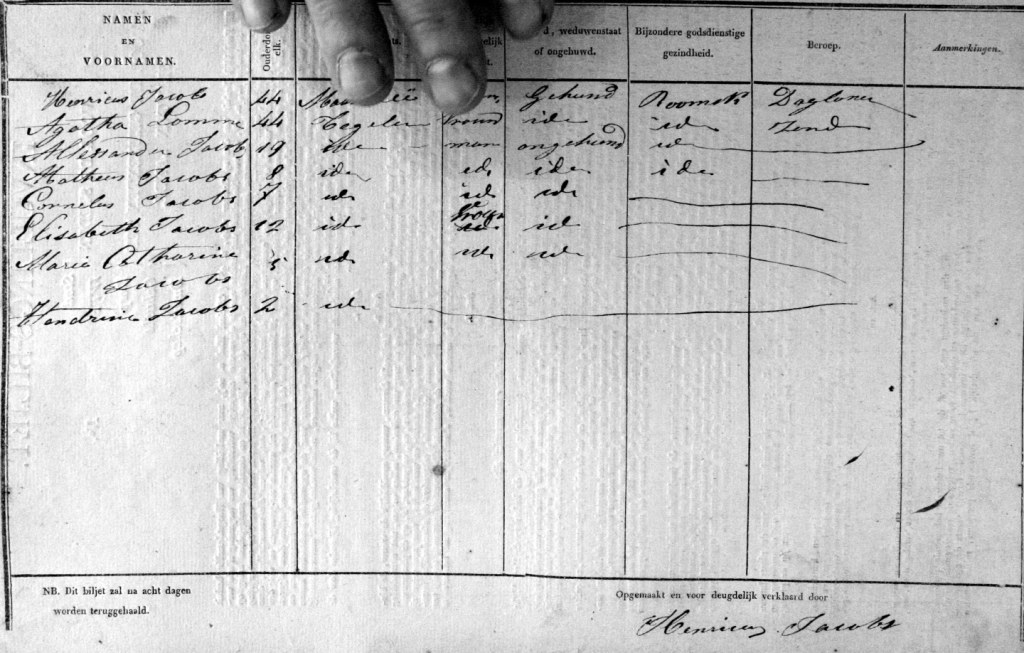 NAMEN EN VOORNAMEN. Ouderdom elk. weduwenstaat of ongehuwd. Bijzondere godsdienstige gezindheid. Beroep. Aanmerkingen.
Henricus Jacobs 44 Gehuud Roomsk Dagloner
Agatha Lomme 44 Tegelen vrouw ide ide
Allessander Jacobs 19 ide man ongehuud ide
Matheus Jacobs 8 ide ide ide ide
Cornelus Jacobs 7 ide ide ide
Elisabeth Jacobs 12 ide vrouw ide
Maria Catharina 5 ide ide ide
Jacobs
Handrina Jacobs 2 ide
NB. Dit biljet zal na acht dagen
worden teruggehaald.
Opgemaakt en voor deugdelijk verklaard door
Henricus Jacobs